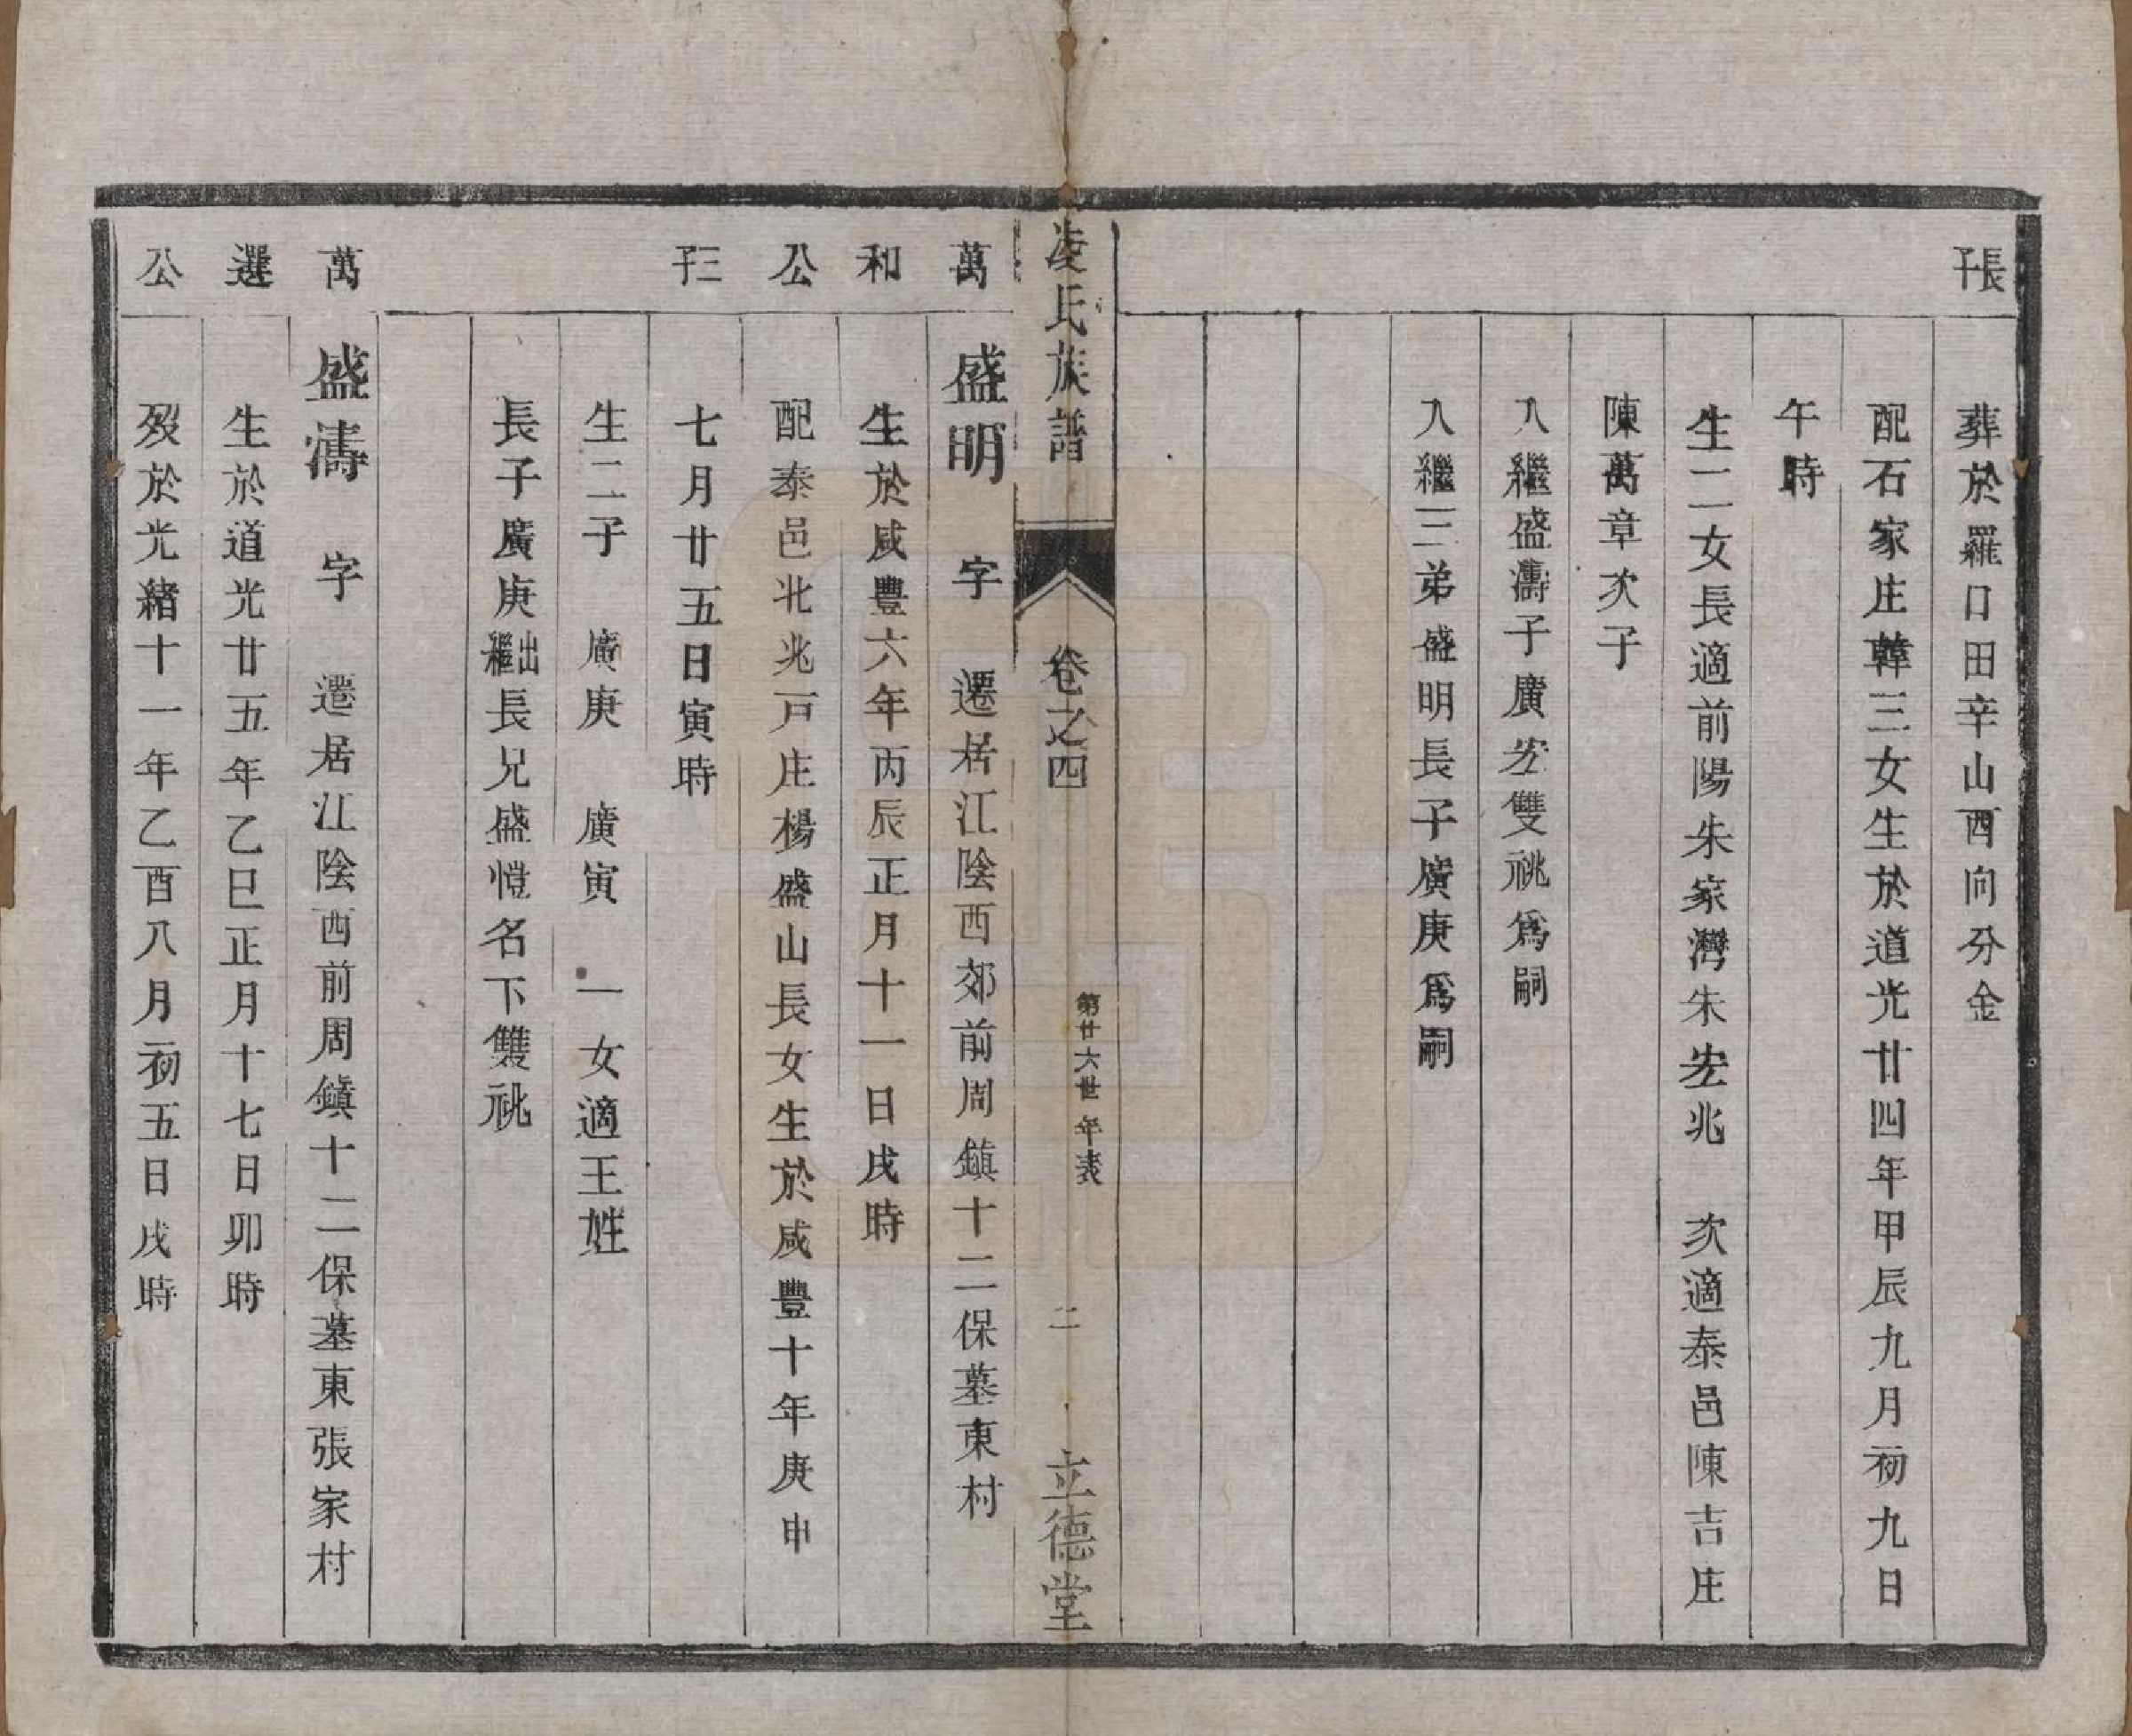 長子
葬於羅口田辛山酉向分金
配石家庄韓三女生於道光廿四年甲辰九月初九日
午時
生二女長適前陽朱家灣朱宏兆　次適泰邑陳吉庄
陳萬章次子
入繼盛濤子廣宏雙祧爲嗣
入繼三弟盛明長子廣庚爲嗣
凌氏族譜　卷之四　第廿六世年表　二　立德堂
萬和公三子
盛明　字　遷居江陰西郊前周鎮十二保墓東村
生於咸豐六年丙辰正月十一日戌時
配泰邑北兆戸庄楊盛山長女生於咸豐十年庚申
七月廿五日寅時
生二子　廣庚　廣寅　一女適王姓
長子廣庚出繼長兄盛愷名下雙祧
萬選公
盛濤　字　遷居江陰西前周鎮十二保墓東張家村
生於道光廿五年乙巳正月十七日卯時
歿於光緒十一年乙酉八月初五日戌時